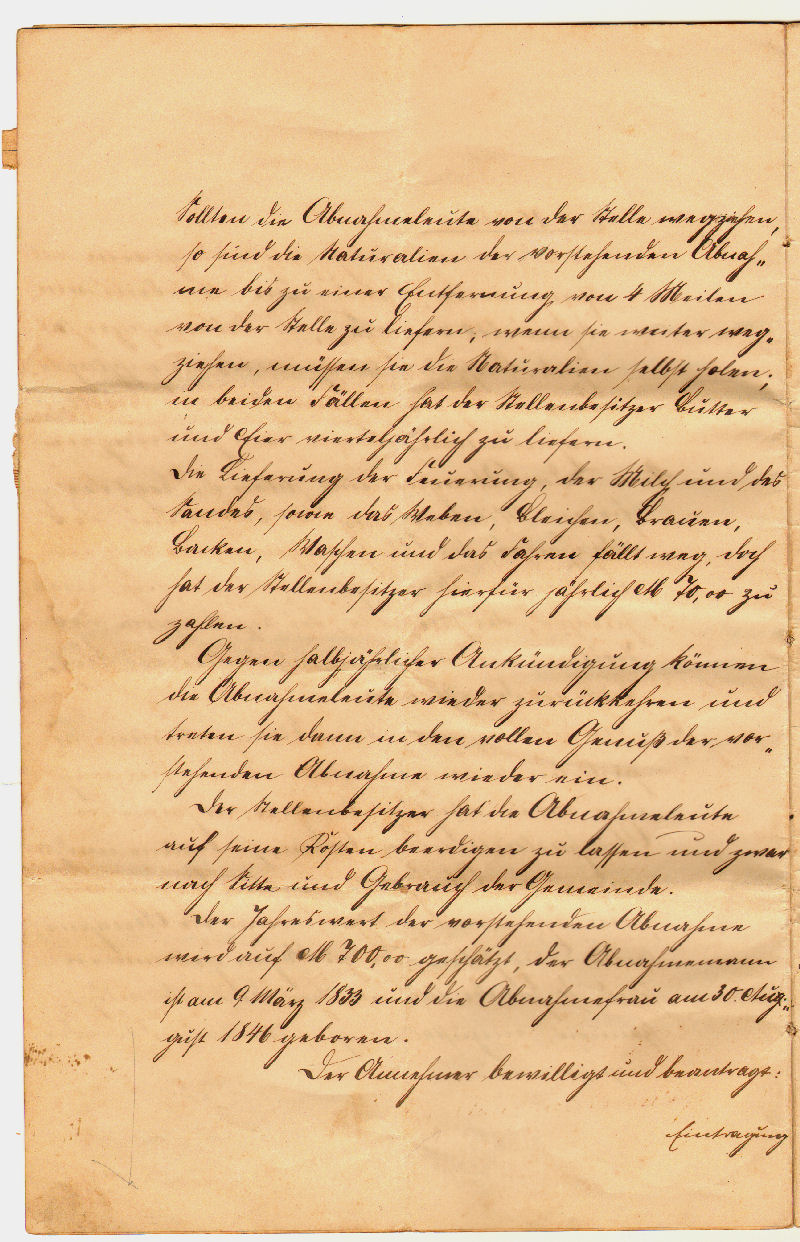 Sollten die Abnahmeleute von der Stelle wegziehen,
so sind die Naturalien der vorstehenden Abnah„
me bis zu einer Entfernung von 4 Meilen
von der Stelle zu liefern, wenn sie weiter weg„
ziehen, müssen sie die Naturalien selbst holen;
in beiden Fällen hat der Stellenbesitzer Butter
und Eier vierteljährlich zu liefern.
Die Lieferung der Feuerung, der Milch und des
Sandes, sowie das Weben, Bleichen, Brauen,
Backen, Waschen und das Fahren fällt weg, doch
hat der Stellenbesitzer hierfür jährlich M 70,00 zu
zahlen.
Gegen halbjährlicher Ankündigung können
die Abnahmeleute wieder zurückkehren und
treten sie dann in den vollen Genuß der vor„
stehenden Abnahme wieder ein.
Der Stellenbesitzer hat die Abnahmeleute
auf seine Kosten beerdigen zu lassen und zwar
nach Sitte und Gebrauch der Gemeinde.
Der Jahreswert der vorstehenden Abnahme
wird auf M 700,00 geschätzt, der Abnahmemann
ist am 9 März 1833 und die Abnahmefrau am 30. Aug„
gust 1846 geboren.
Der Annehmer bewilligt und beantragt:
Eintragung